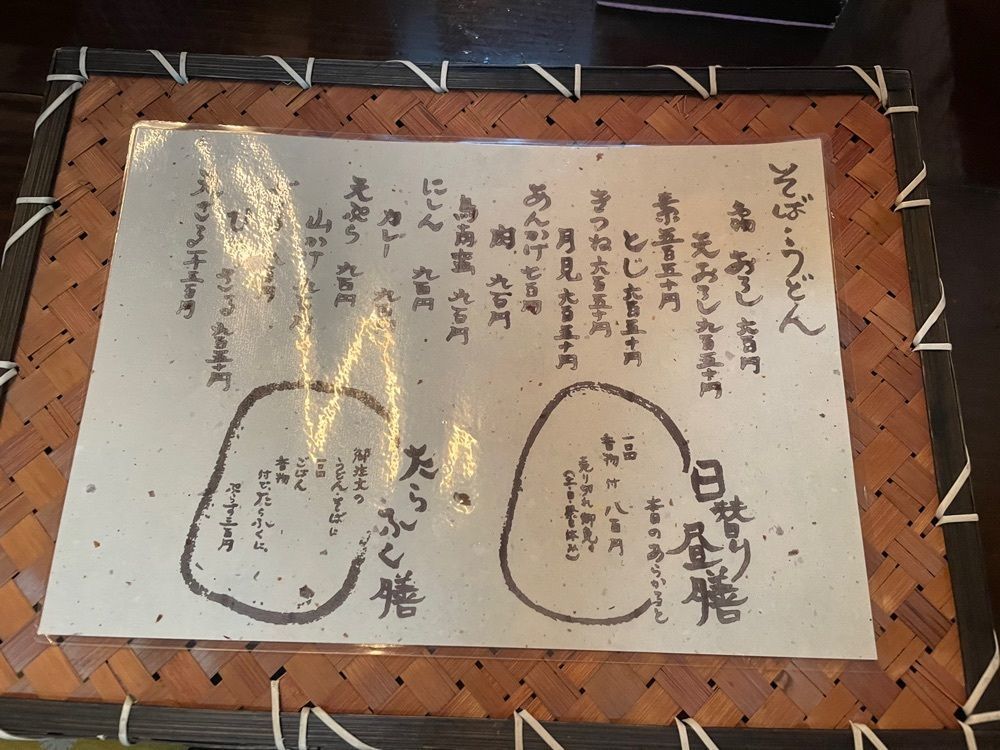 そば・うどん
おろし 六百円
天おろし 九百五十円
素 五百五十円
とじ 六百五十円
きつね 六百五十円
月見 六百五十円
あんかけ 七百円
肉 九百円
鳥南蛮 九百円
にしん 九百円
カレー 九百
天ぷら 九百円
山かけ 九
ざる 九百五十円
天ざる 千三百円
日替り昼膳
昔のあらかると
一品
香物 付 八百円
売り切れ御免。
たらふく膳
御注文の
うどん・そばに
一品
ごはん
香物
付でたらふくに。
ぷらす三百円